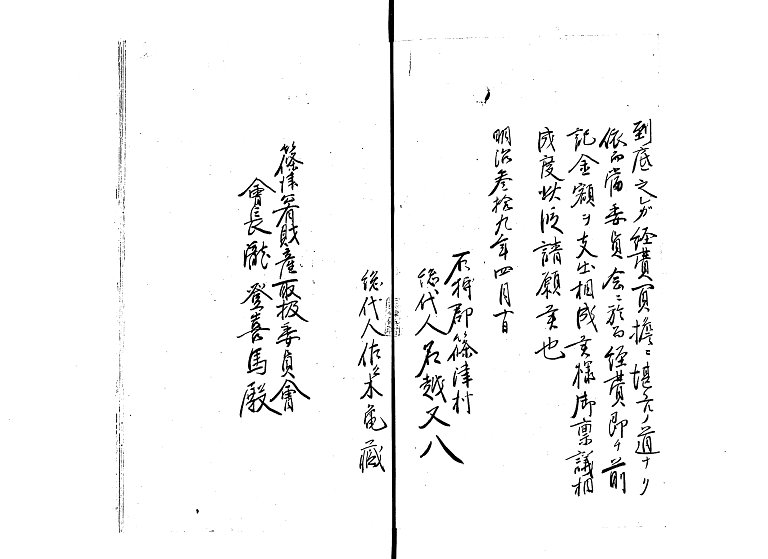 到底之レガ経費負擔ニ堪ヘルノ道ナク
依而當委員会ニ於而経費即チ前
記金額ヲ支出相成候様御稟議相
成度此段請願候也
明治参拾九年四月 日
石狩郡篠津村
総代人 名越又八
総代人 佐々木亀蔵
篠津 財産取扱委員會
會長瀧登喜馬殿